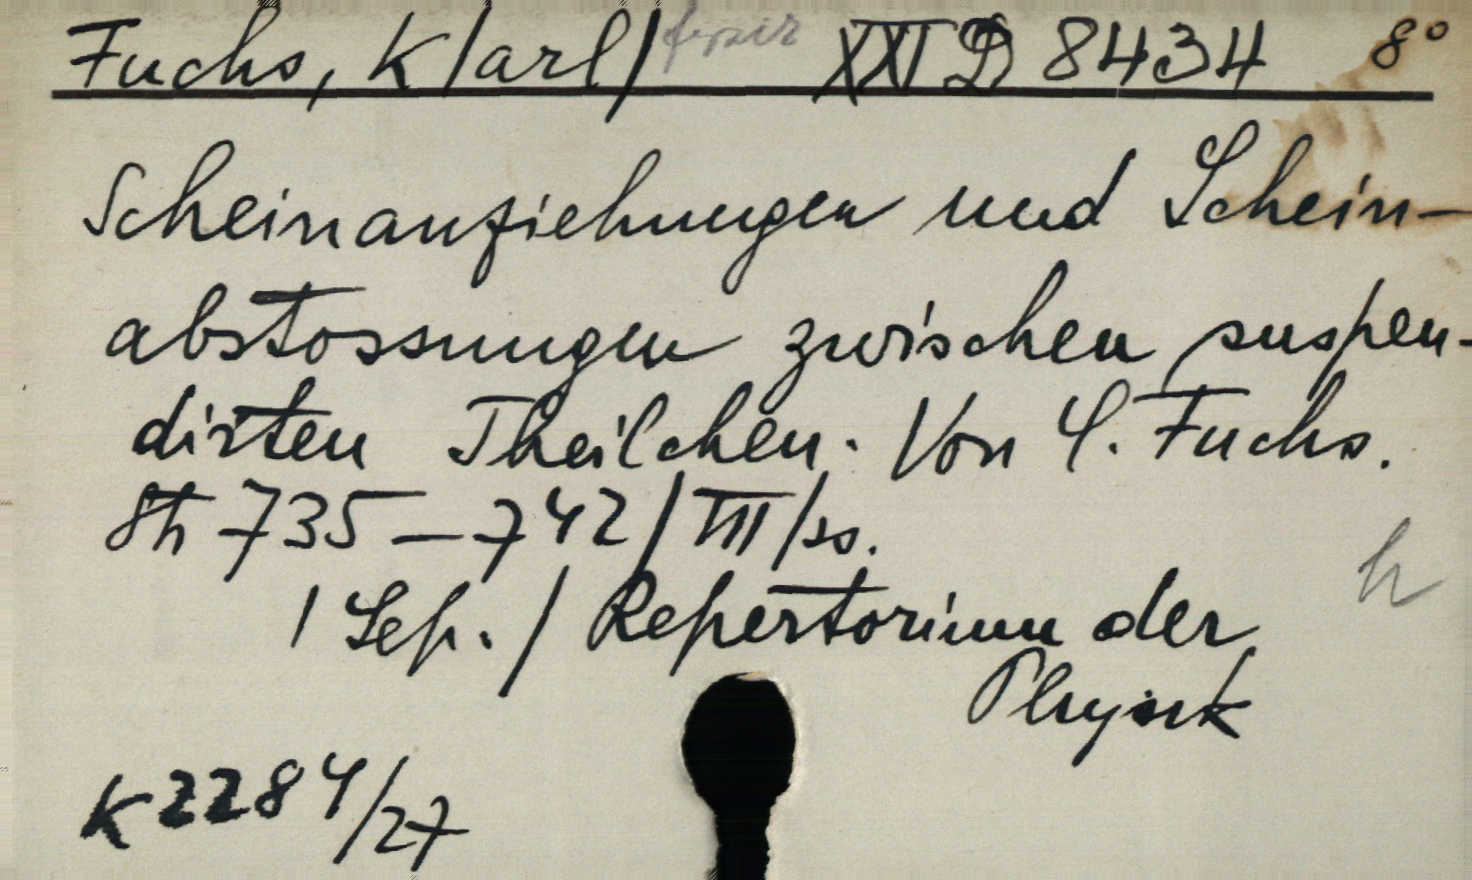 Fuchs, K/arl/ XXI D 8434 8°
Scheinanziehungen und Schein-
abstossungen zwischen suspen-
dirten Theilchen. Von C. Fuchs.
St 735-742/III/ss.
/Sep./ Repertorium der
Physik
h
K 2284/27